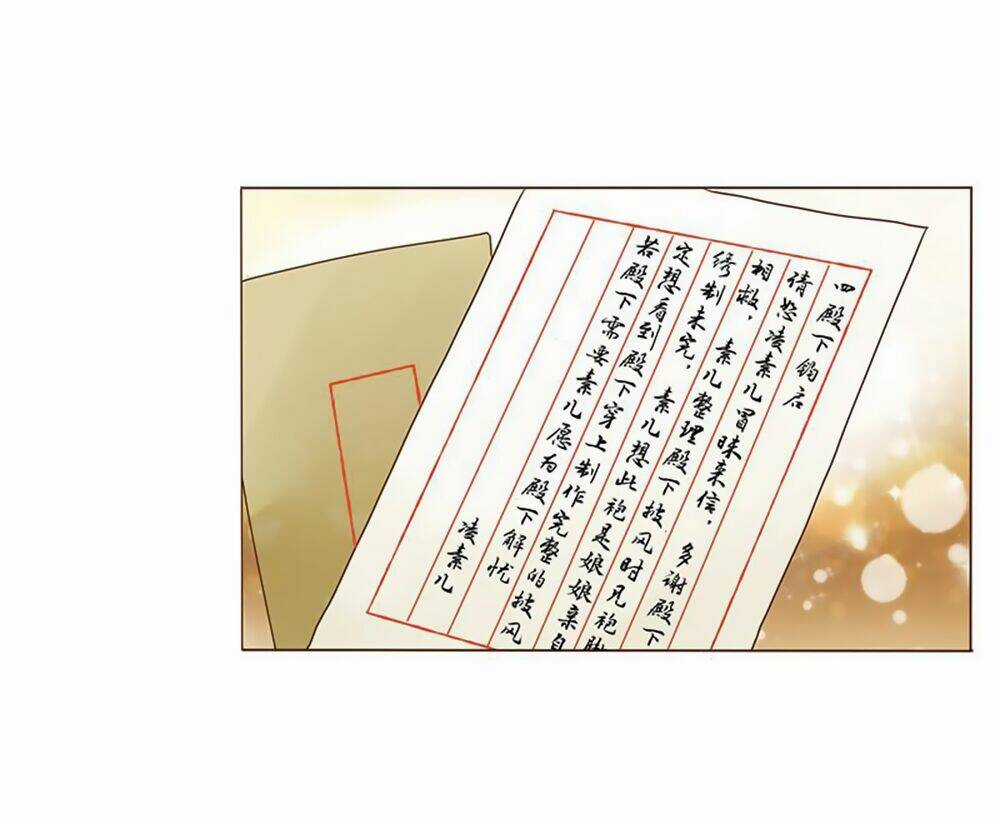 四殿下钧启
倩恕凌素儿冒昧来信，多谢殿下
相救，素儿整理殿下披风时见袍脚
绣制未完，素儿想此袍是娘娘亲自
定想看到殿下穿上制作完整的披风
若殿下需要素儿愿为殿下解忧
凌素儿